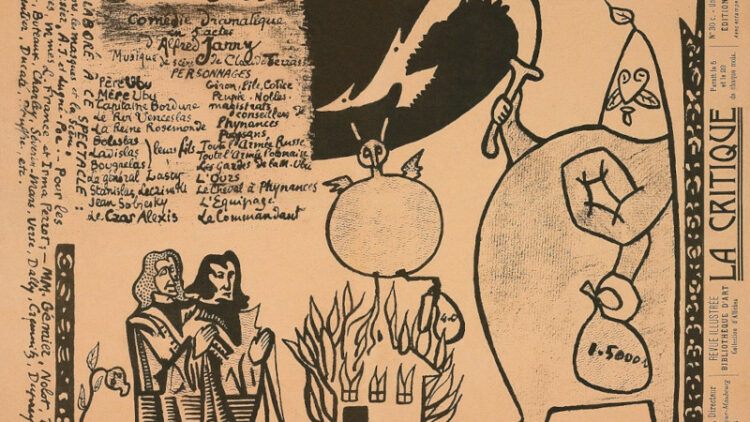 Comédie Dramatique
en 5 actes
d'Alfred Jarry
Musique de scène de Claude Terrasse
PERSONNAGES
Père Ubu
Mère Ubu
Capitaine Bordure
Le Roi Venceslas
La Reine Rosemonde
Boleslas
Ladislas
Bougrelas
leurs fils
Le général Lascy
Stanislas Leczinski
Jean Sobieski
Le Czar Alexis
Giron, Pile, Cotice
Peuple. Nobles.
magistrats
conseillers de
Phynances
Paysans
Toute l'Armée Russe
Toute l'Armée Polonaise
Les Gardes de la M. Ubu
L'Ours
Le Cheval à Phynances
L'Equipage
Le Commandant
LABORÉ À CE SPECTACLE :
les masques et la
A.J. et Pour les
Mmes L. France et Irma Perrot, — MM. Gémier Nolot,
Buteaux, Charley, Séverin-Mars, Verse, Dally,
Ducaté, etc.
4.0
1.5000
N° 30 c.
EDITION
Paraît le 5
et le 20
de chaque mois.
LA CRITIQUE
REVUE ILLUSTRÉE
BIBLIOTHÈQUE D'ART
Collection d'Affiches
Directeur